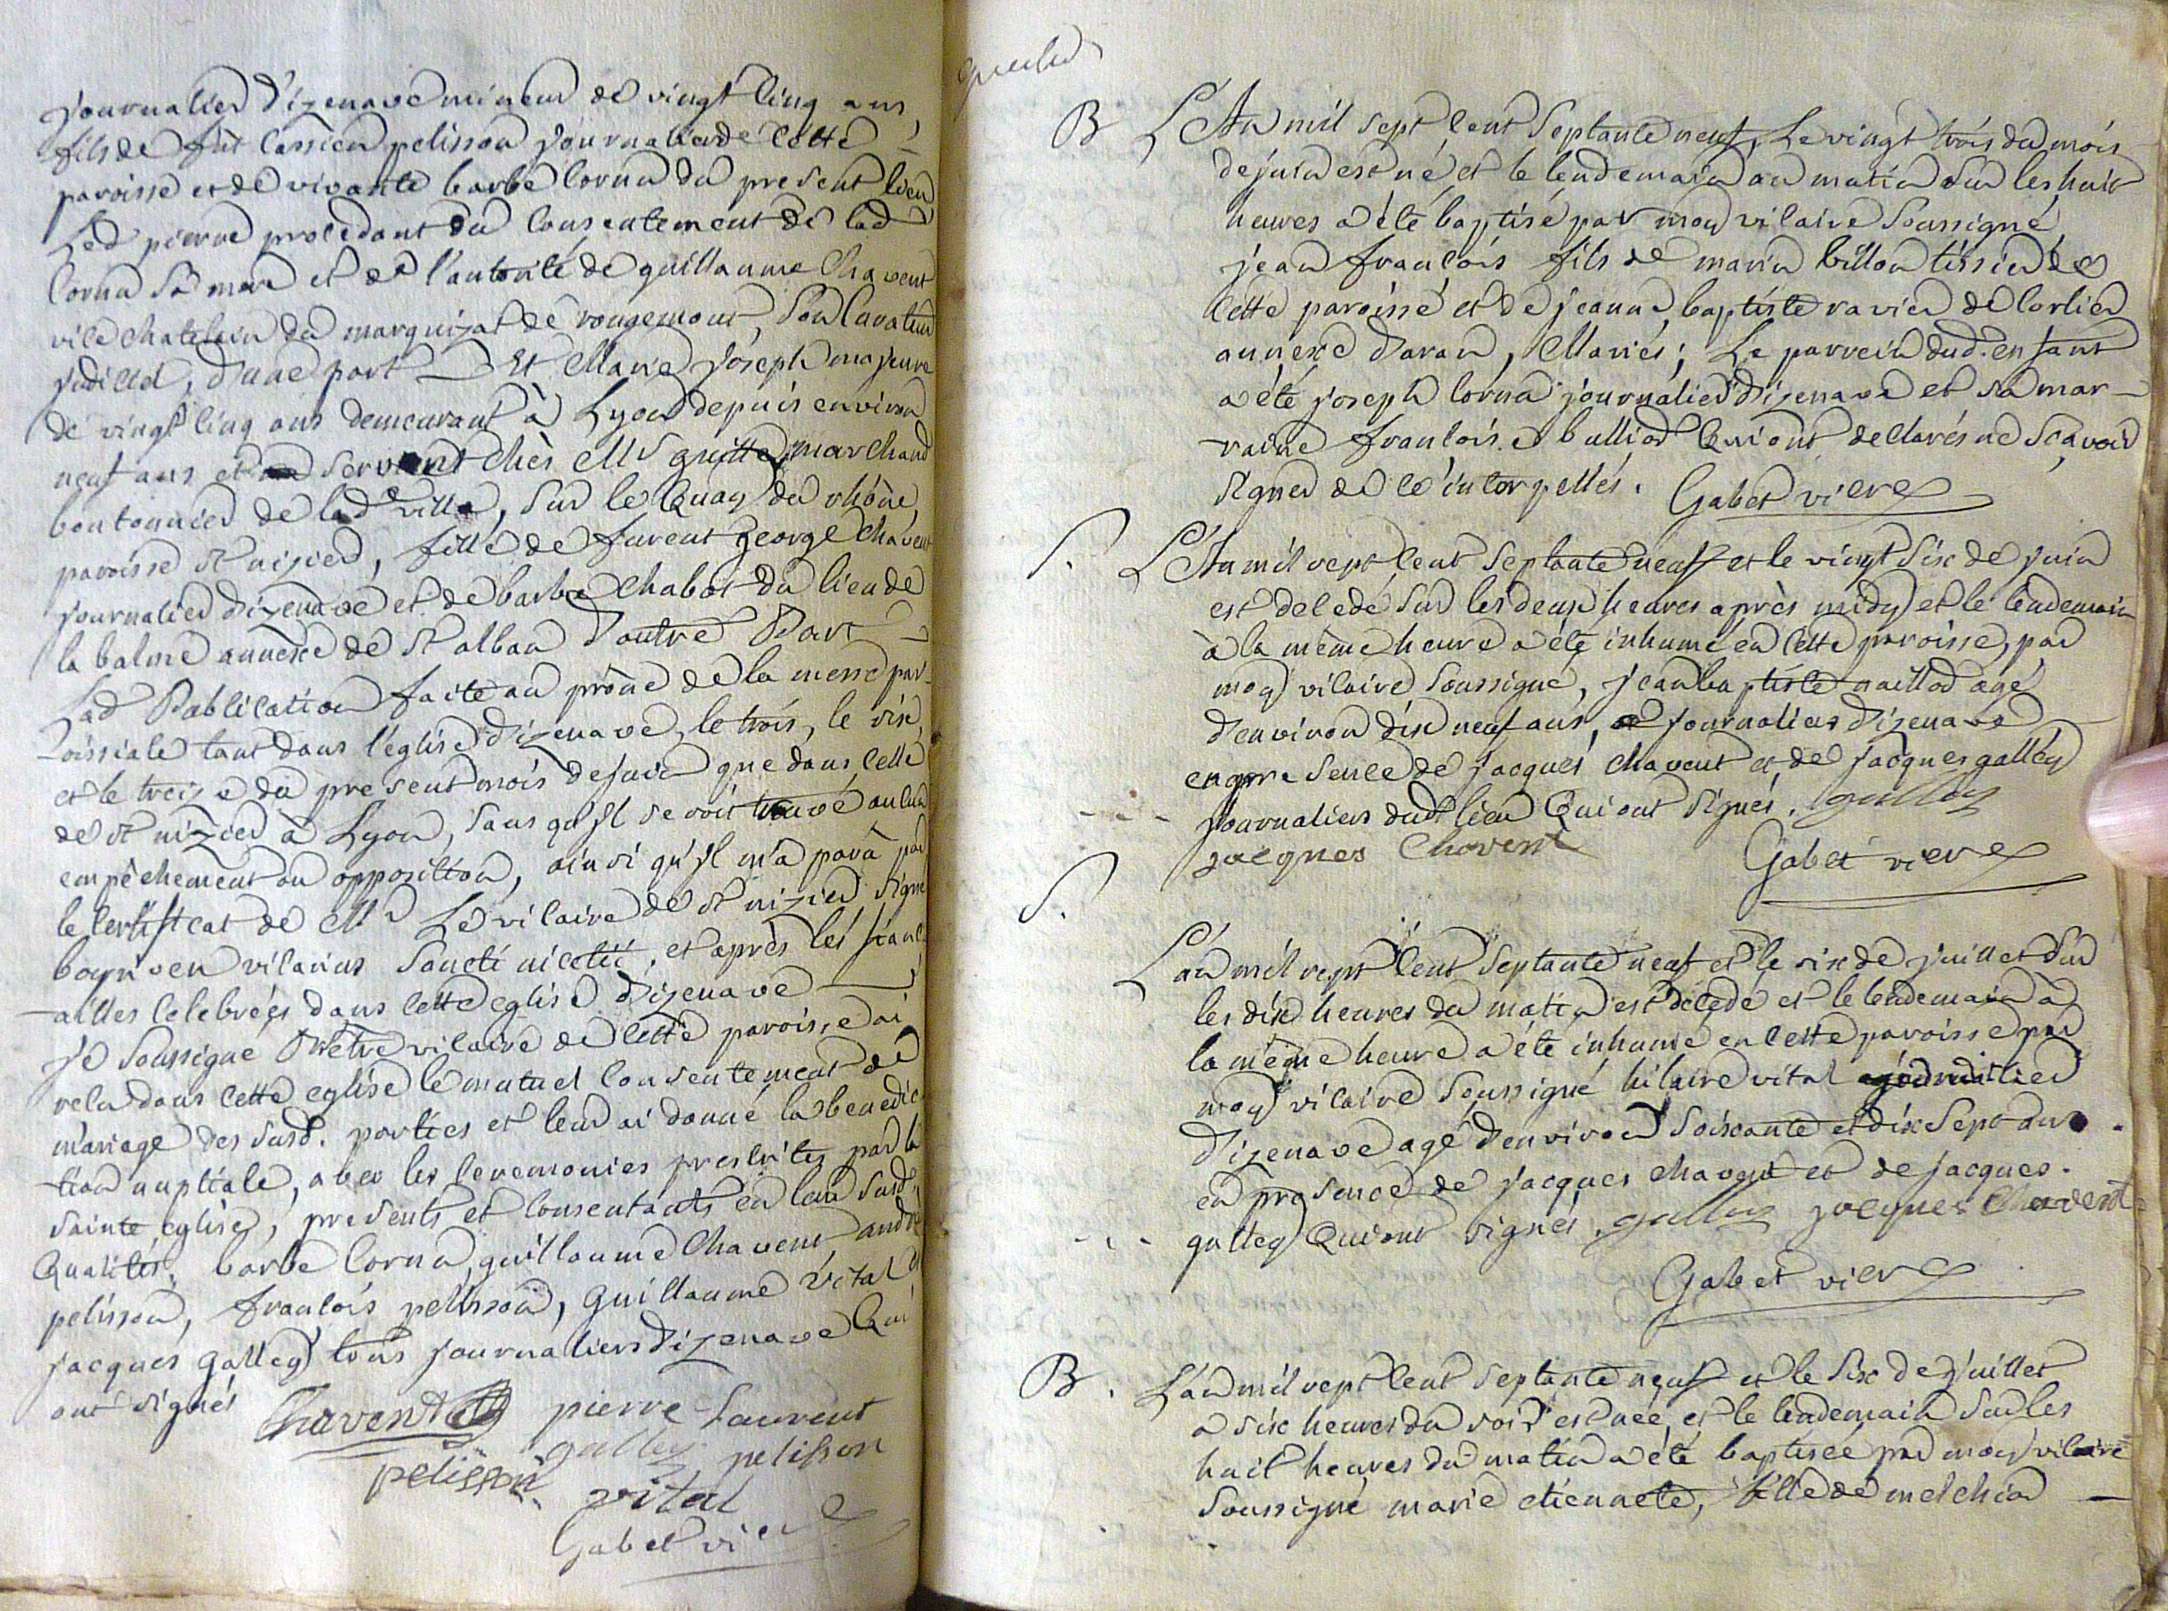 journalier d'izenave mineur de vingt cinq ans
fils de fût Cassien pelisson journalier de cette
paroisse et de vivante barbe Cornu du present lieu
Led pierre procedant du consentement de lad
Cornu sa mere et de l'autorité de guillaume Chavent
vice chatelain du marquizat de rougemont, son Curateur
d'une part Et Marie joseph majeure
de vingt cinq ans demeurant à Lyon depuis environ
neuf ans et servant chès Mr marchand
boutonnier de lad ville, sur le Quay du rhône,
paroisse st nizier, fille de furent george Chavent
journalier d'izenave et de barbe Chabot du lieu de
la balme annexe de st alban d'autre Part
Lad Publication faite au prône de la messe par-
-oissiale tant dans l'église d'izenave, le trois, le six
et le treize du present mois de juin que dans celle
de st nizier à Lyon, sans qu'il se soit trouvé aucun
empêchement ou opposition, ainsi qu'il m'a paru par
le certificat de Mr Le vicaire de st nizier signé
vicarius Sancti nicetii, et après les fianc-
-ailles celebrées dans cette eglise d'izenave
je soussigné Prêtre vicaire de cette paroisse ai
reçu dans cette eglise le mutuel consentement de
mariage des susd. parties et leur ai donné la benedic-
-tion nuptiale, avec les ceremonies prescrites par la
sainte eglise, presents et consentants en leur susd
Qualités, barbe Cornu, guillaume Chavent, andré
pelisson, françois pelisson, Guillaume vital et
jacques Galley tous journaliers d'izenave Qui
ont signés
Chavent pierre Laurent
galley pelisson
pelisson vital
Gabet vicre
B L'An mil sept cent Septante neuf, Le vingt trois du mois
de juin est né et le lendemain au matin sur les huit
heures a été baptisé par moy vicaire soussigné
jean françois fils de marin billon tissier de
cette paroisse et de jeanne baptiste ravier de Corlier
annexe d'aran, Mariés; Le parrein dud. enfant
a été joseph Cornu journalier d'izenave et sa mar-
-raine françoise bulliod Qui ont declarés ne sçavoir
signer de ce interpellés. Gabet vicre
S. L'An mil sept cent Septante neuf et le vingt six de juin
est decedé sur les deux heures après midy et le lendemain
à la même heure a été inhumé en cette paroisse, par
moy vicaire soussigné, jean baptiste naillod agé
d'environ dix neuf ans, journalier d'izenave
en presence de jacques Chavent et de jacques galley
journaliers dud lieu Qui ont signés. galley
jacques Chavent Gabet vicre
S. L'an mil sept cent Septante neuf et le six de juillet sur
les dix heures du matin est decedé et le lendemain à
la même heure a été inhumé en cette paroisse par
moy vicaire soussigné hilaire vital journalier
d'izenave agé d'environ soixante et dix sept ans.
en presence de jacques chavent et de jacques
galley Qui ont signés. galley jacques Chavent
Gabet vicre
B. L'an mil sept cent Septante neuf et le six de juillet
a six heures du soir est née, et le lendemain sur les
huit heures du matin a été baptisée par moy vicaire
soussigné marie etiennete, fille de melchior